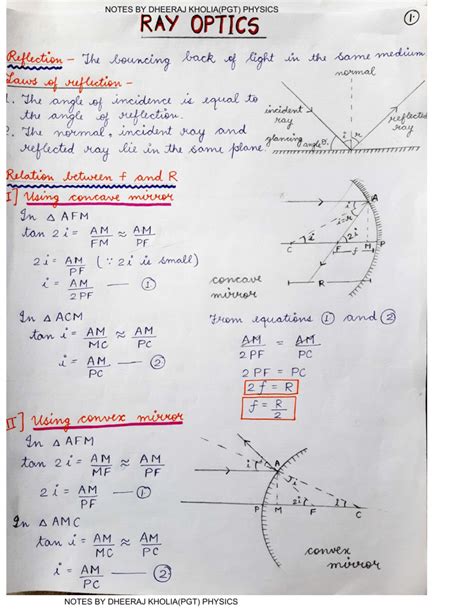 NOTES BY DHEERAJ KHOLIA(PGT) PHYSICS
RAY OPTICS
1.
Reflection - The bouncing back of light in the same medium
Laws of reflection -
1. The angle of incidence is equal to
the angle of reflection.
2. The normal, incident ray and
reflected ray lie in the same plane.
normal
incident ray
reflected ray
glancing angle θ
i
r
Relation between f and R
I] Using concave mirror
In △ AFM
tan 2i = AM/FM ≈ AM/PF
2i = AM/PF (∵ 2i is small)
i = AM/2PF — ①
A
i
i=r
i
2i
C
F
M
P
f
R
concave
mirror
In △ ACM
tan i = AM/MC ≈ AM/PC
i = AM/PC — ②
From equations ① and ②
AM/2PF = AM/PC
2PF = PC
2f = R
f = R/2
II] Using convex mirror
In △ AFM
tan 2i = AM/MF ≈ AM/PF
2i = AM/PF — ①
In △ AMC
tan i = AM/MC ≈ AM/PC
i = AM/PC — ②
A
i
i
2i
i
P
M
F
C
convex
mirror
NOTES BY DHEERAJ KHOLIA(PGT) PHYSICS